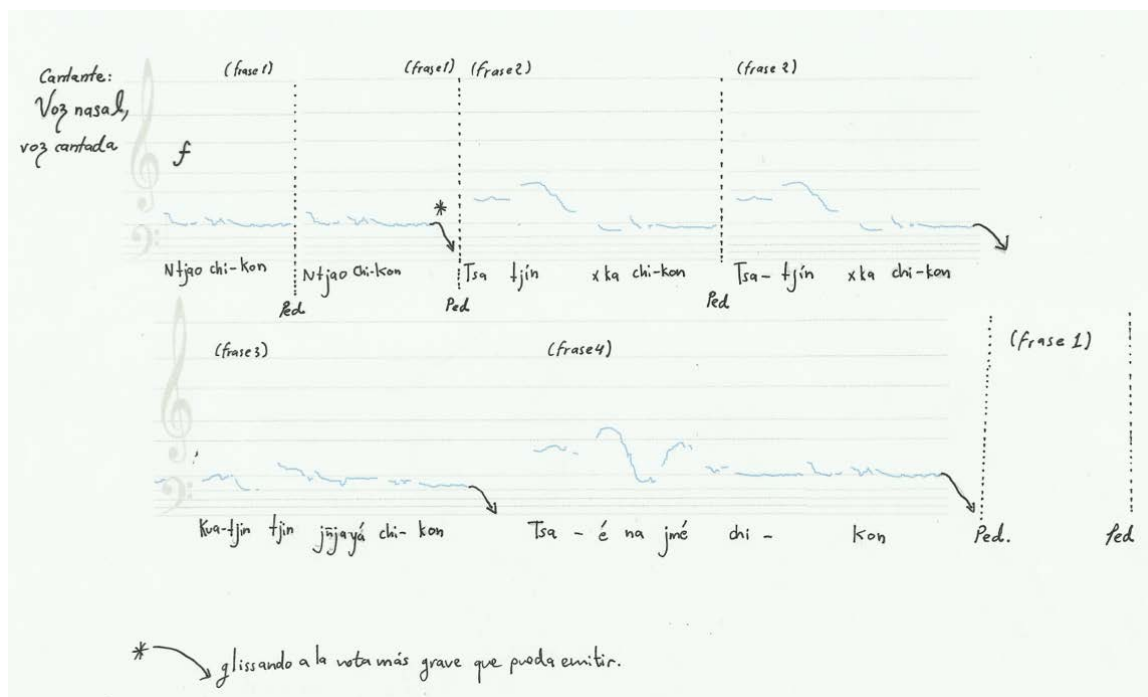 Cantante:
Voz nasal,
voz cantada
(frase1) (frase1) (frase2) (frase 2)
f
*
Ntjao chi-kon Ntjao chi-kon Tsa tjín xka chi-kon Tsa-tjín xka chi-kon
Ped Ped Ped
(frase3) (frase4) (frase 1)
Kua-tjin tjin jñjayá chi-kon Tsa - é na jmé chi - kon Ped. Ped
* glissando a la nota más grave que pueda emitir.